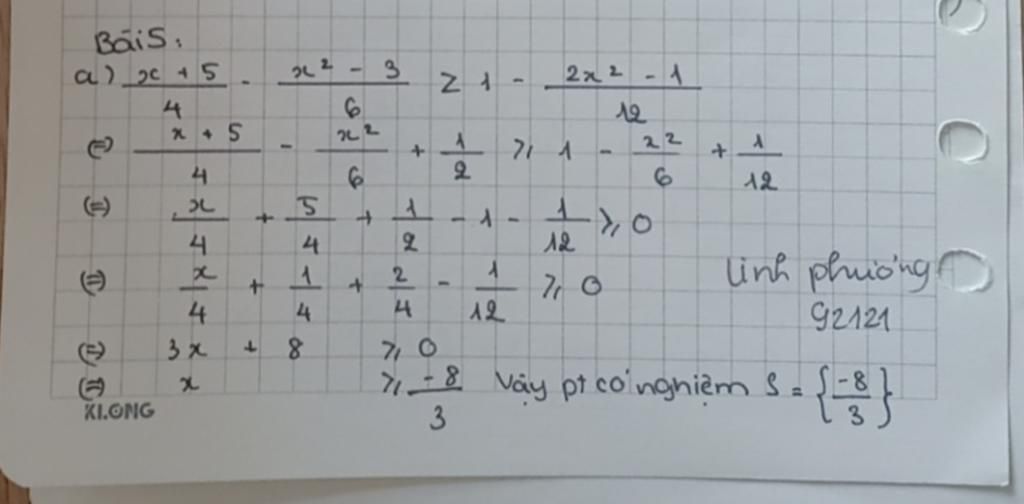 Bài 5:
a) \frac{x + 5}{4} - \frac{x² - 3}{6} ≥ 1 - \frac{2x² - 1}{12}
(=) \frac{x + 5}{4} - \frac{x²}{6} + \frac{1}{2} ≥ 1 - \frac{x²}{6} + \frac{1}{12}
(=) \frac{x}{4} + \frac{5}{4} + \frac{1}{2} - 1 - \frac{1}{12} ≥ 0
(=) \frac{x}{4} + \frac{1}{4} + \frac{2}{4} - \frac{1}{12} ≥ 0
linh phương
92121
(=) 3x + 8 ≥ 0
(=) x ≥ \frac{-8}{3} Vậy pt có nghiệm S = {\frac{-8}{3}}
KLONG